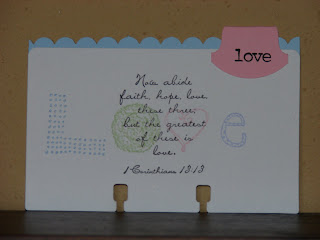 love
Now abide
faith, hope, love
these three;
but the greatest
of these is
love.
1 Corinthians 13:13
Love